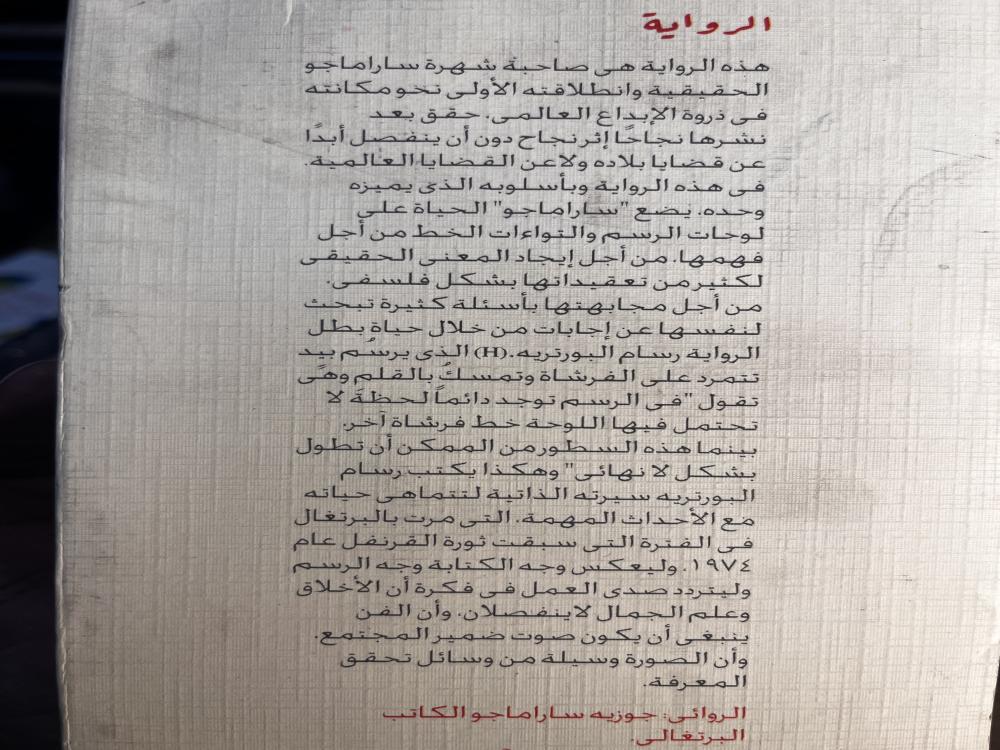 الرواية
هذه الرواية هى صاحبة شهرة ساراماجو
الحقيقية وانطلاقته الأولى نحو مكانته
فى ذروة الإبداع العالمى. حقق بعد
نشرها نجاحًا إثر نجاح دون أن ينفصل أبدًا
عن قضايا بلاده ولا عن القضايا العالمية.
فى هذه الرواية وبأسلوبه الذى يميزه
وحده، يضع "ساراماجو" الحياة على
لوحات الرسم والتواءات الخط من أجل
فهمها. من أجل إيجاد المعنى الحقيقى
لكثير من تعقيداتها بشكل فلسفى.
من أجل مجابهتها بأسئلة كثيرة تبحث
لنفسها عن إجابات من خلال حياة بطل
الرواية رسام البورتريه. (H) الذى يرسم بيد
تتمرد على الفرشاة وتمسك بالقلم وهى
تقول "فى الرسم توجد دائماً لحظة لا
تحتمل فيها اللوحة خط فرشاة آخر.
بينما هذه السطور من الممكن أن تطول
بشكل لا نهائى" وهكذا يكتب رسام
البورتريه سيرته الذاتية لتتماهى حياته
مع الأحداث المهمة، التى مرت بالبرتغال
فى الفترة التى سبقت ثورة القرنفل عام
١٩٧٤. وليعكس وجه الكتابة وجه الرسم
وليتردد صدى العمل فى فكرة أن الأخلاق
وعلم الجمال لاينفصلان، وأن الفن
ينبغى أن يكون صوت ضمير المجتمع.
وأن الصورة وسيلة من وسائل تحقق
المعرفة.
الروائى: جوزيه ساراماجو الكاتب
البرتغالى.